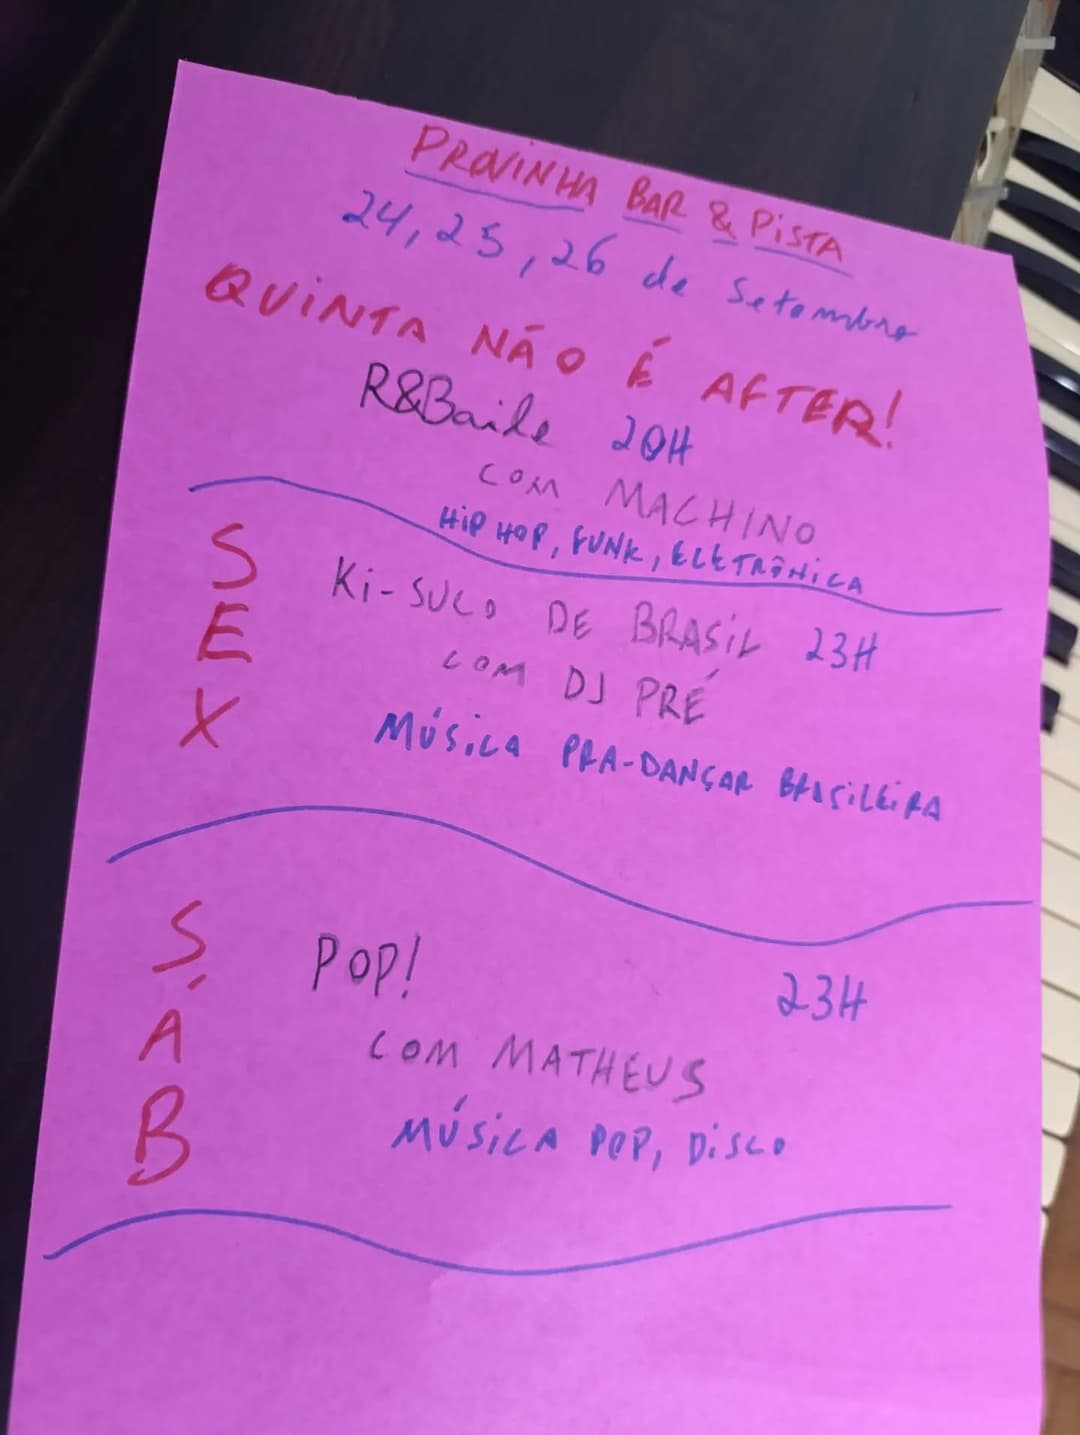 PROVINHA BAR & PiSTA
24, 25, 26 de Setembro
QUiNTA NÃO É AFTER!
R&Baile 20H
COM MACHINO
HiP HOP, FUNK, ELETRÔNiCA
SEX
Ki-SUCO DE BRASiL 23H
COM DJ PRÉ
MÚSiCA PRA-DANÇAR BRASiLEiRA
SÁB
POP! 23H
COM MATHEUS
MÚSiCA POP, DiSCO